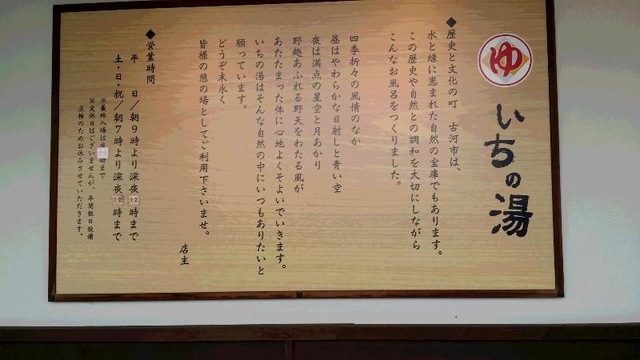 ゆ
いちの湯
◆歴史と文化の町　古河市は、
水と緑に恵まれた自然の宝庫でもあります。
この歴史や自然との調和を大切にしながら
こんなお風呂をつくりました。
四季折々の風情のなか
昼はやわらかな日射しと青い空
夜は満点の星空と月あかり
野趣あふれる野天をわたる風が
あたたまった体に心地よくそよいでいきます。
いちの湯はそんな自然の中にいつもありたいと
願っています。
どうぞ末永く
皆様の憩の場としてご利用下さいませ。
店主
◆営業時間
平　日／朝9時より深夜12時まで
土・日・祝／朝7時より深夜12時まで
※最終入場は 時まで
※定休日はございませんが、年間数日設備
点検のためお休みさせていただきます。